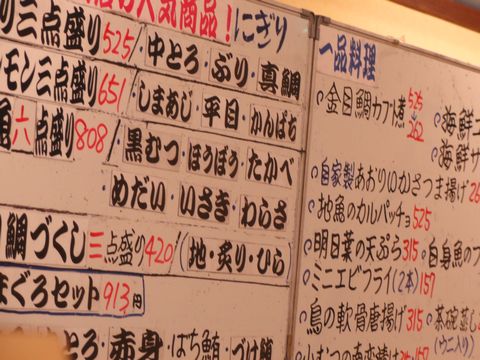 人気商品！にぎり
三点盛り525
中とろ・ぶり・真鯛
モン三点盛り651
しまあじ・平目・かんぱち
六点盛り808
黒むつ・ほうぼう・たかべ
めだい・いさき・わらさ
鯛づくし三点盛り420
（地・炙り・ひら）
まぐろセット913円
とろ・赤身・ばち鮪・づけ鮪
一品料理
金目鯛カブト煮525
262
海鮮
海鮮サ
自家製あおり(いか)さつま揚げ26
地魚のカルパッチョ525
明日葉の天ぷら315
白身魚のフ
ミニエビフライ(2本)157
鳥の軟骨唐揚げ315
茶碗蒸し
(ウニ入り)